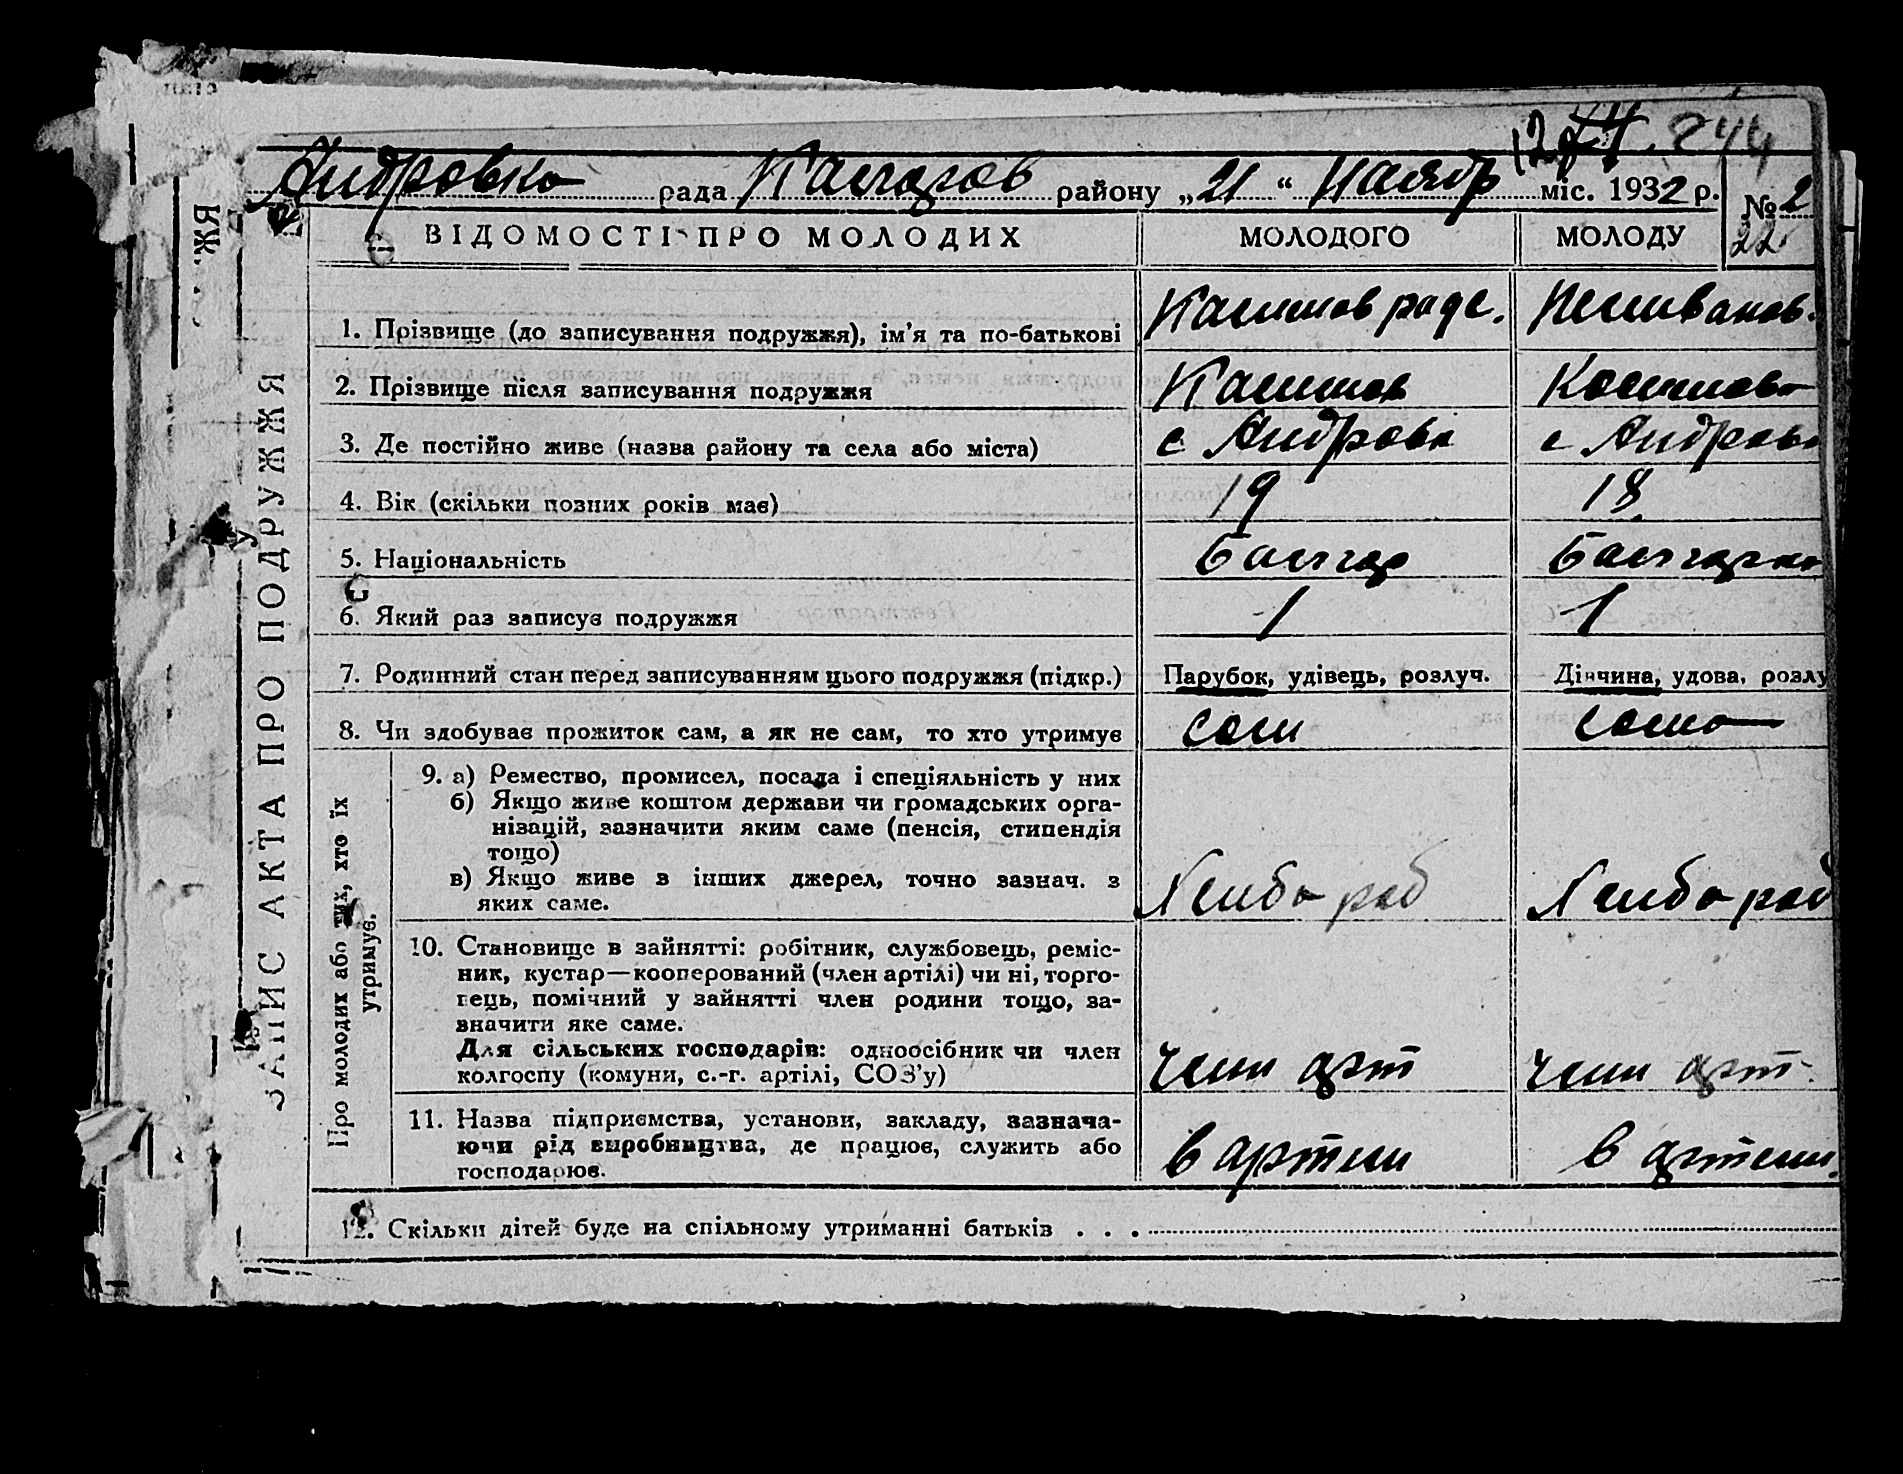 244
Андровка рада Калчагов району „21“ Наябр міс. 1932 р.
№ 2
22
ЗАПИС АКТА ПРО ПОДРУЖЖЯ
ВІДОМОСТІ ПРО МОЛОДИХ МОЛОДОГО МОЛОДУ
1. Прізвище (до записування подружжя), ім’я та по-батькові
2. Прізвище після записування подружжя
3. Де постійно живе (назва району та села або міста) с Андровк с Андровк
4. Вік (скільки повних років має) 19 18
5. Національність Балгар Балгарка
6. Який раз записує подружжя 1 1
7. Родинний стан перед записуванням цього подружжя (підкр.) Парубок, удівець, розлуч. Дівчина, удова, розлу
8. Чи здобуває прожиток сам, а як не сам, то хто утримує сам сама
Про молодих або тих, хто їх утримує.
9. а) Ремество, промисел, посада і спеціяльність у них
б) Якщо живе коштом держави чи громадських орга-
нізацій, зазначити яким саме (пенсія, стипендія
тощо)
в) Якщо живе з інших джерел, точно зазнач. з
яких саме. Хлибароб Хлибароб
10. Становище в зайнятті: робітник, службовець, реміс-
ник, кустар—кооперований (член артілі) чи ні, торго-
вець, помічний у зайнятті член родини тощо, за-
значити яке саме.
Для сільських господарів: одноосібник чи член
колгоспу (комуни, с.-г. артілі, СОЗ’у) член арт член арт.
11. Назва підприємства, установи, закладу, зазнача-
ючи рід виробництва, де працює, служить або
господарює. в артели в артели.
12. Скільки дітей буде на спільному утриманні батьків . . .